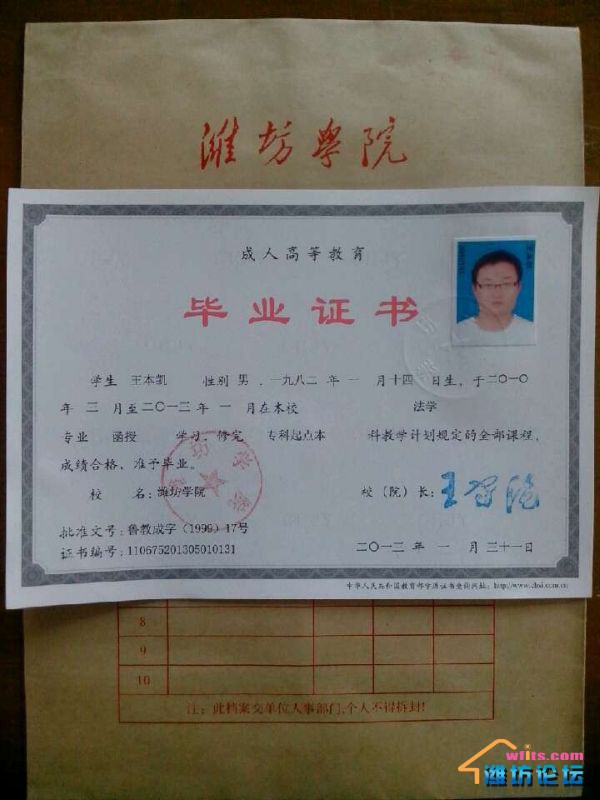 潍坊學院
成人高等教育
毕业证书
学生 王本凯 性别 男 , 一九八二 年 一 月 十四 日生, 于二〇一〇
年 三 月至二〇一三 年 一 月在本校 法学
专业 函授 学习, 修完 专科起点本 科教学计划规定的全部课程,
成绩合格, 准予毕业。
校 名: 潍坊学院 校（院）长:
批准文号: 鲁教成字（1999）17号
证书编号: 110675201305010131 二〇一三 年 一 月 三十一日
中华人民共和国教育部学历证书查询网址: http://www.chsi.com.cn
8
9
10
注: 此档案交单位人事部门,个人不得拆封!
wfits.com
潍坊论坛